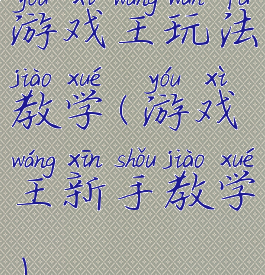 yóu xì wáng wán fǎ
游戏王玩法
jiào xué yóu xì
教学(游戏
wáng xīn shǒu jiào xué
王新手教学
)